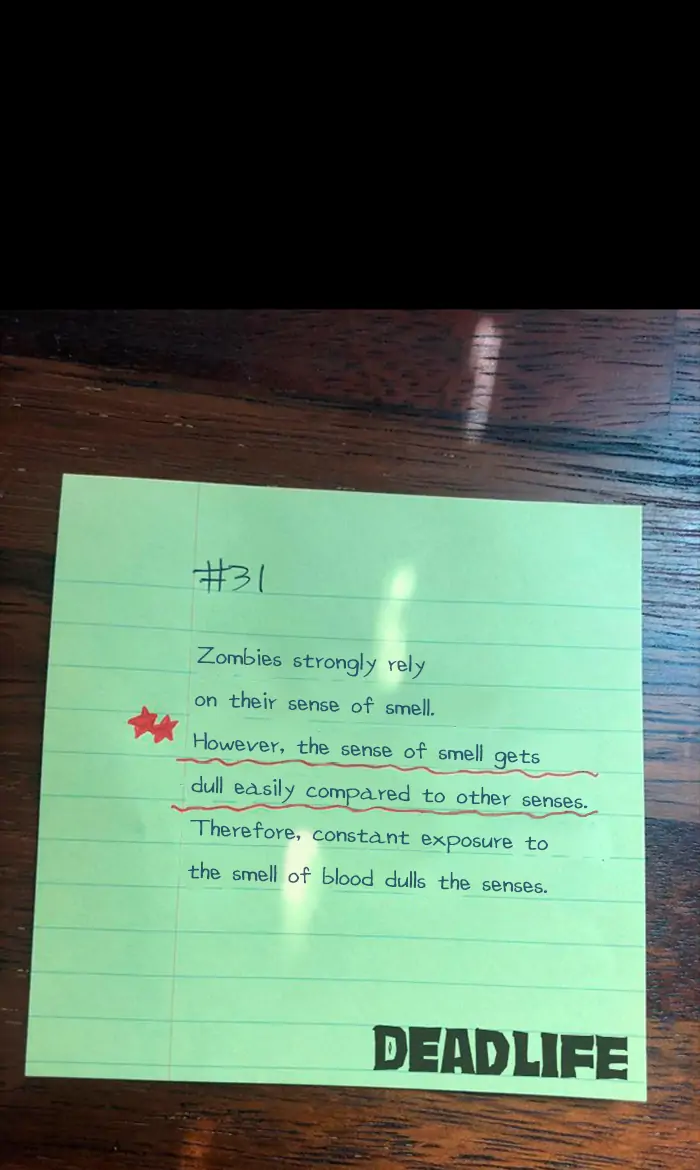 #31
Zombies strongly rely
on their sense of smell.
However, the sense of smell gets
dull easily compared to other senses.
Therefore, constant exposure to
the smell of blood dulls the senses.
DEAD LIFE